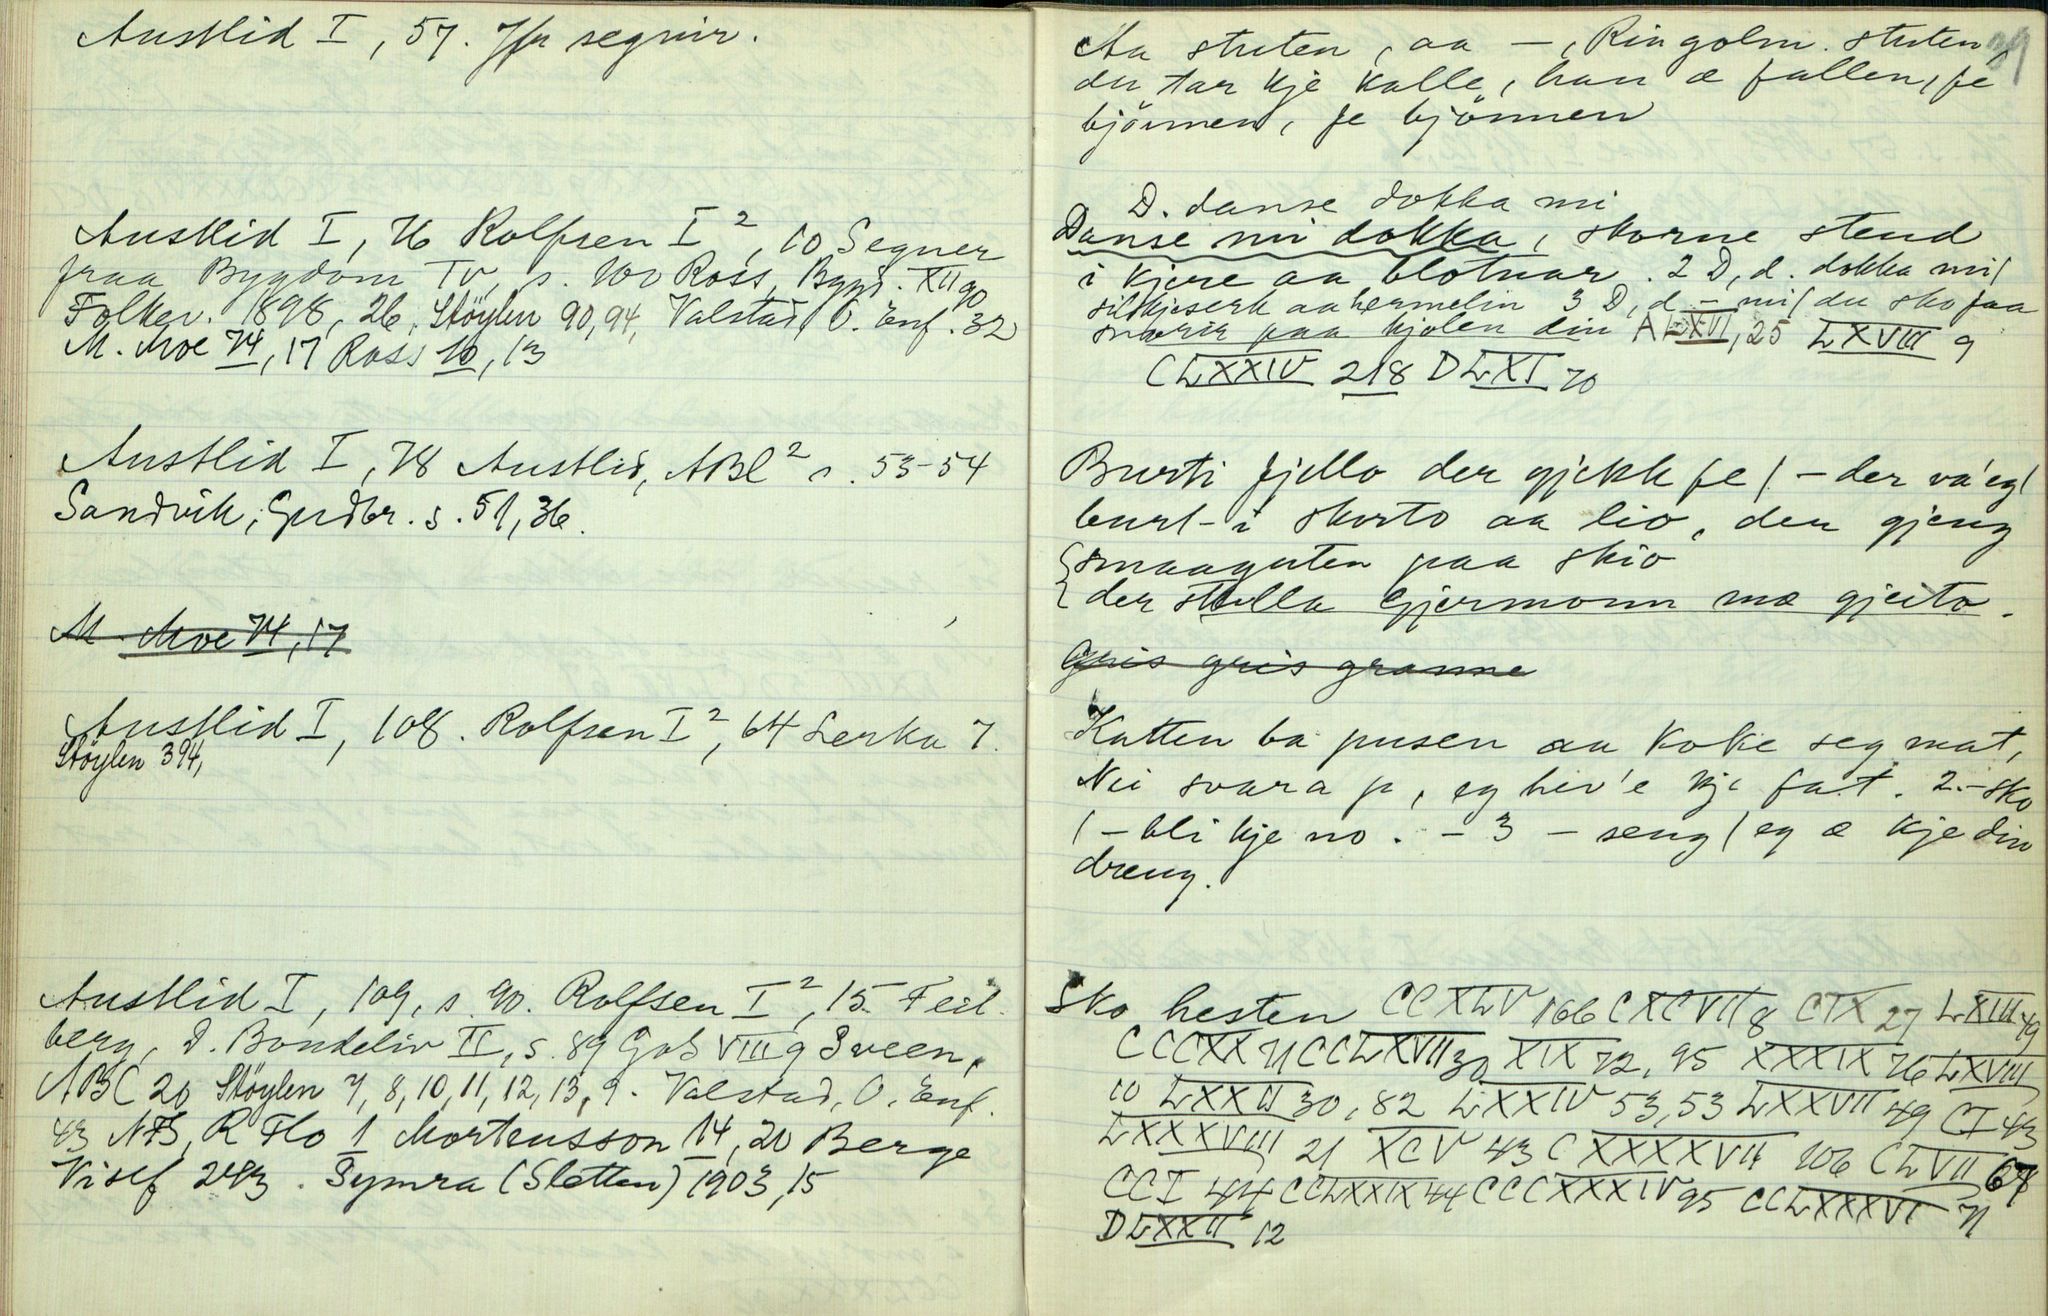 Austlid I, 57. Jfr segnir.
Austlid I, 76 Rolfsen I², 10 Segner
fraa Bygdom IV, s. 100 Ross, Bygd. XII 90
Folkev. 1898, 26, Støylen 90,94, Valstad, O. Enf. 32
M. Moe 74, 17 Ross 10, 13
Austlid I, 78 Austlid, ABC² s. 53-54
Sandvik, Gudbr. s. 51, 36.
M. Moe 74, 17
Austlid I, 108. Rolfsen I², 64 Lerka 7.
Støylen 394,
Austlid I, 109, s. 90. Rolfsen I², 15. Feil-
berg, D. Bondeliv II, s. 89 GaS VIII 9 Sveen,
ABC 20 Støylen 7, 8, 10, 11, 12, 13, 9. Valstad, O. Enf.
43 NFS, R Flo 1 Mortensson 14, 20 Berge
Vislf 243. Symra (Sletten) 1903, 15
39
Aa stuten, aa —, Ringolm. stuten
du tar kje kalle, han æ fallen, fe
bjönnen, fe bjönnen
D. danse dokka mi
Danse mi dokka, skorne stend
i kjere aa blotnar. 2 D, d. dokka mi/
silkjeserk aa hermelin 3 D, d — mi/ du sko faa
paa kjolen din A LXVI, 25 LXVIII 9
CLXXIV 218 DLXI 70
Burti fjello der gjekk fe / – der va'eg/
burt – i skorto aa lio, der gjeng
smaaguten paa skio
der stulla Gjermonn mæ gjeito.
Gris gris granne
Katten ba pusen aa koke seg mat,
Nei svara p, eg hev'e kje fat. 2.– sko
/ – bli kje no. – 3 – seng / eg æ kje din
dreng.
Sko hesten CCXLV 166 CXCVII 8 CIX 27 LXIII 49
CCCXX 71 CCLXVII 30 XIX 72, 95 XXXIX 76 LXVIII
10 LXXII 30, 82 LXXIV 53, 53 LXXVII 49 CI 43
LXXXVIII 21 XCV 43 CXXXXVII 106 CLVII 67
CCI 44 CCLXXIX 44 CCCXXXIV 95 CCLXXXVI 71
DLXXII 12